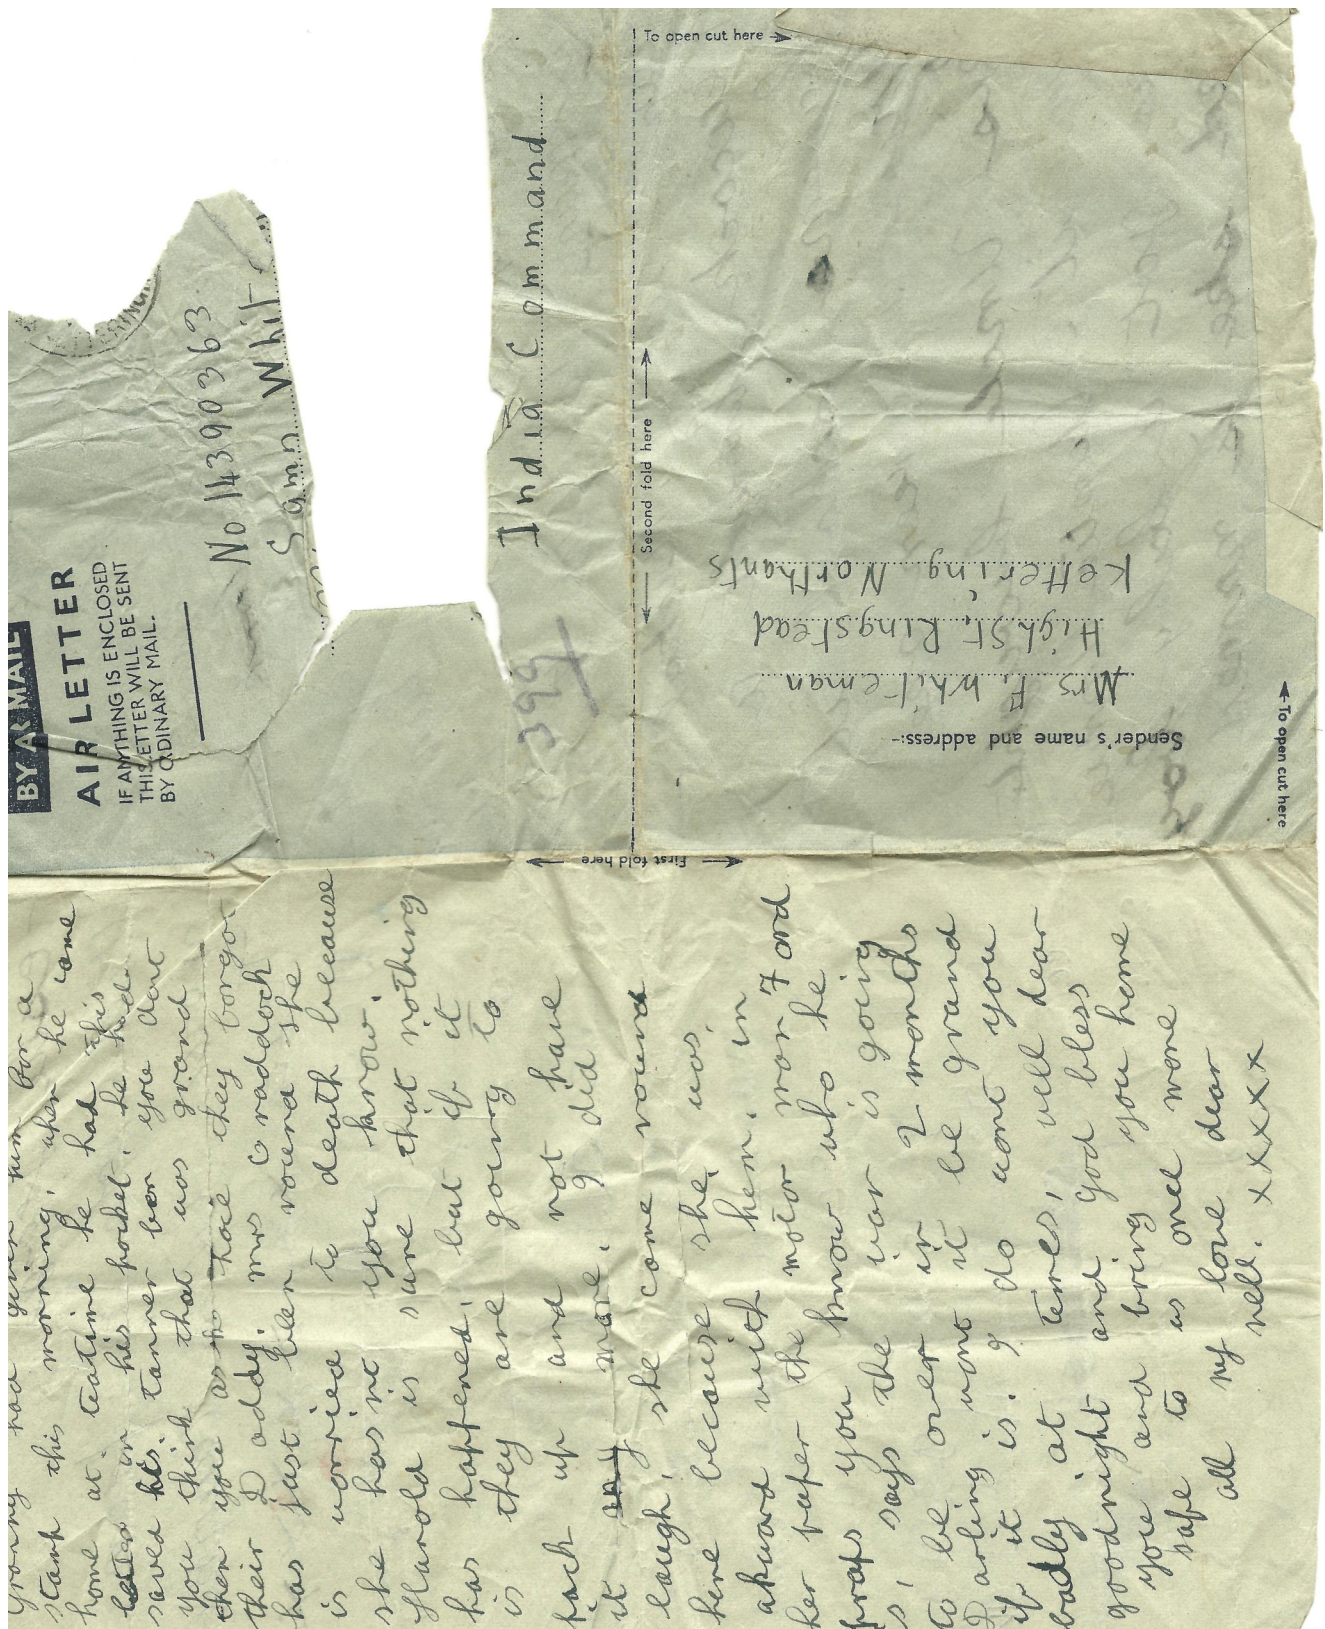 BY AIR MAIL
AIR LETTER
IF ANYTHING IS ENCLOSED
THIS LETTER WILL BE SENT
BY ORDINARY MAIL.
No 14390363
Samn Whit
India Command
399
To open cut here
Second fold here
First fold here
To open cut here
Sender's name and address:-
Mrs F. Whiteman
High St. Ringstead
Kettering Northants
granny had given him for a
stamp this morning, when he come
home at teatime he had this
letter in his pocket. he had
saved his tanner for you dont
you think that was grand
then you as have they forgot
their Daddy. mrs Craddock
has just been round she
is worried to death because
she hasnt you know.
Harold is sure that nothing
has happened, but if it
is they are going to
pack up and not have
it any more. I did
laugh, she come round
here because she was
akward with hem. in
her paper the motor man 7 and
praps you know who he
is, says the war is going
to be over in 2 months
Darling wont it be grand
if it is. I do want you
badly at times, well dear
goodnight and god bless
you and bring you home
safe to us once more
all my love dear
Nell. xxxxx